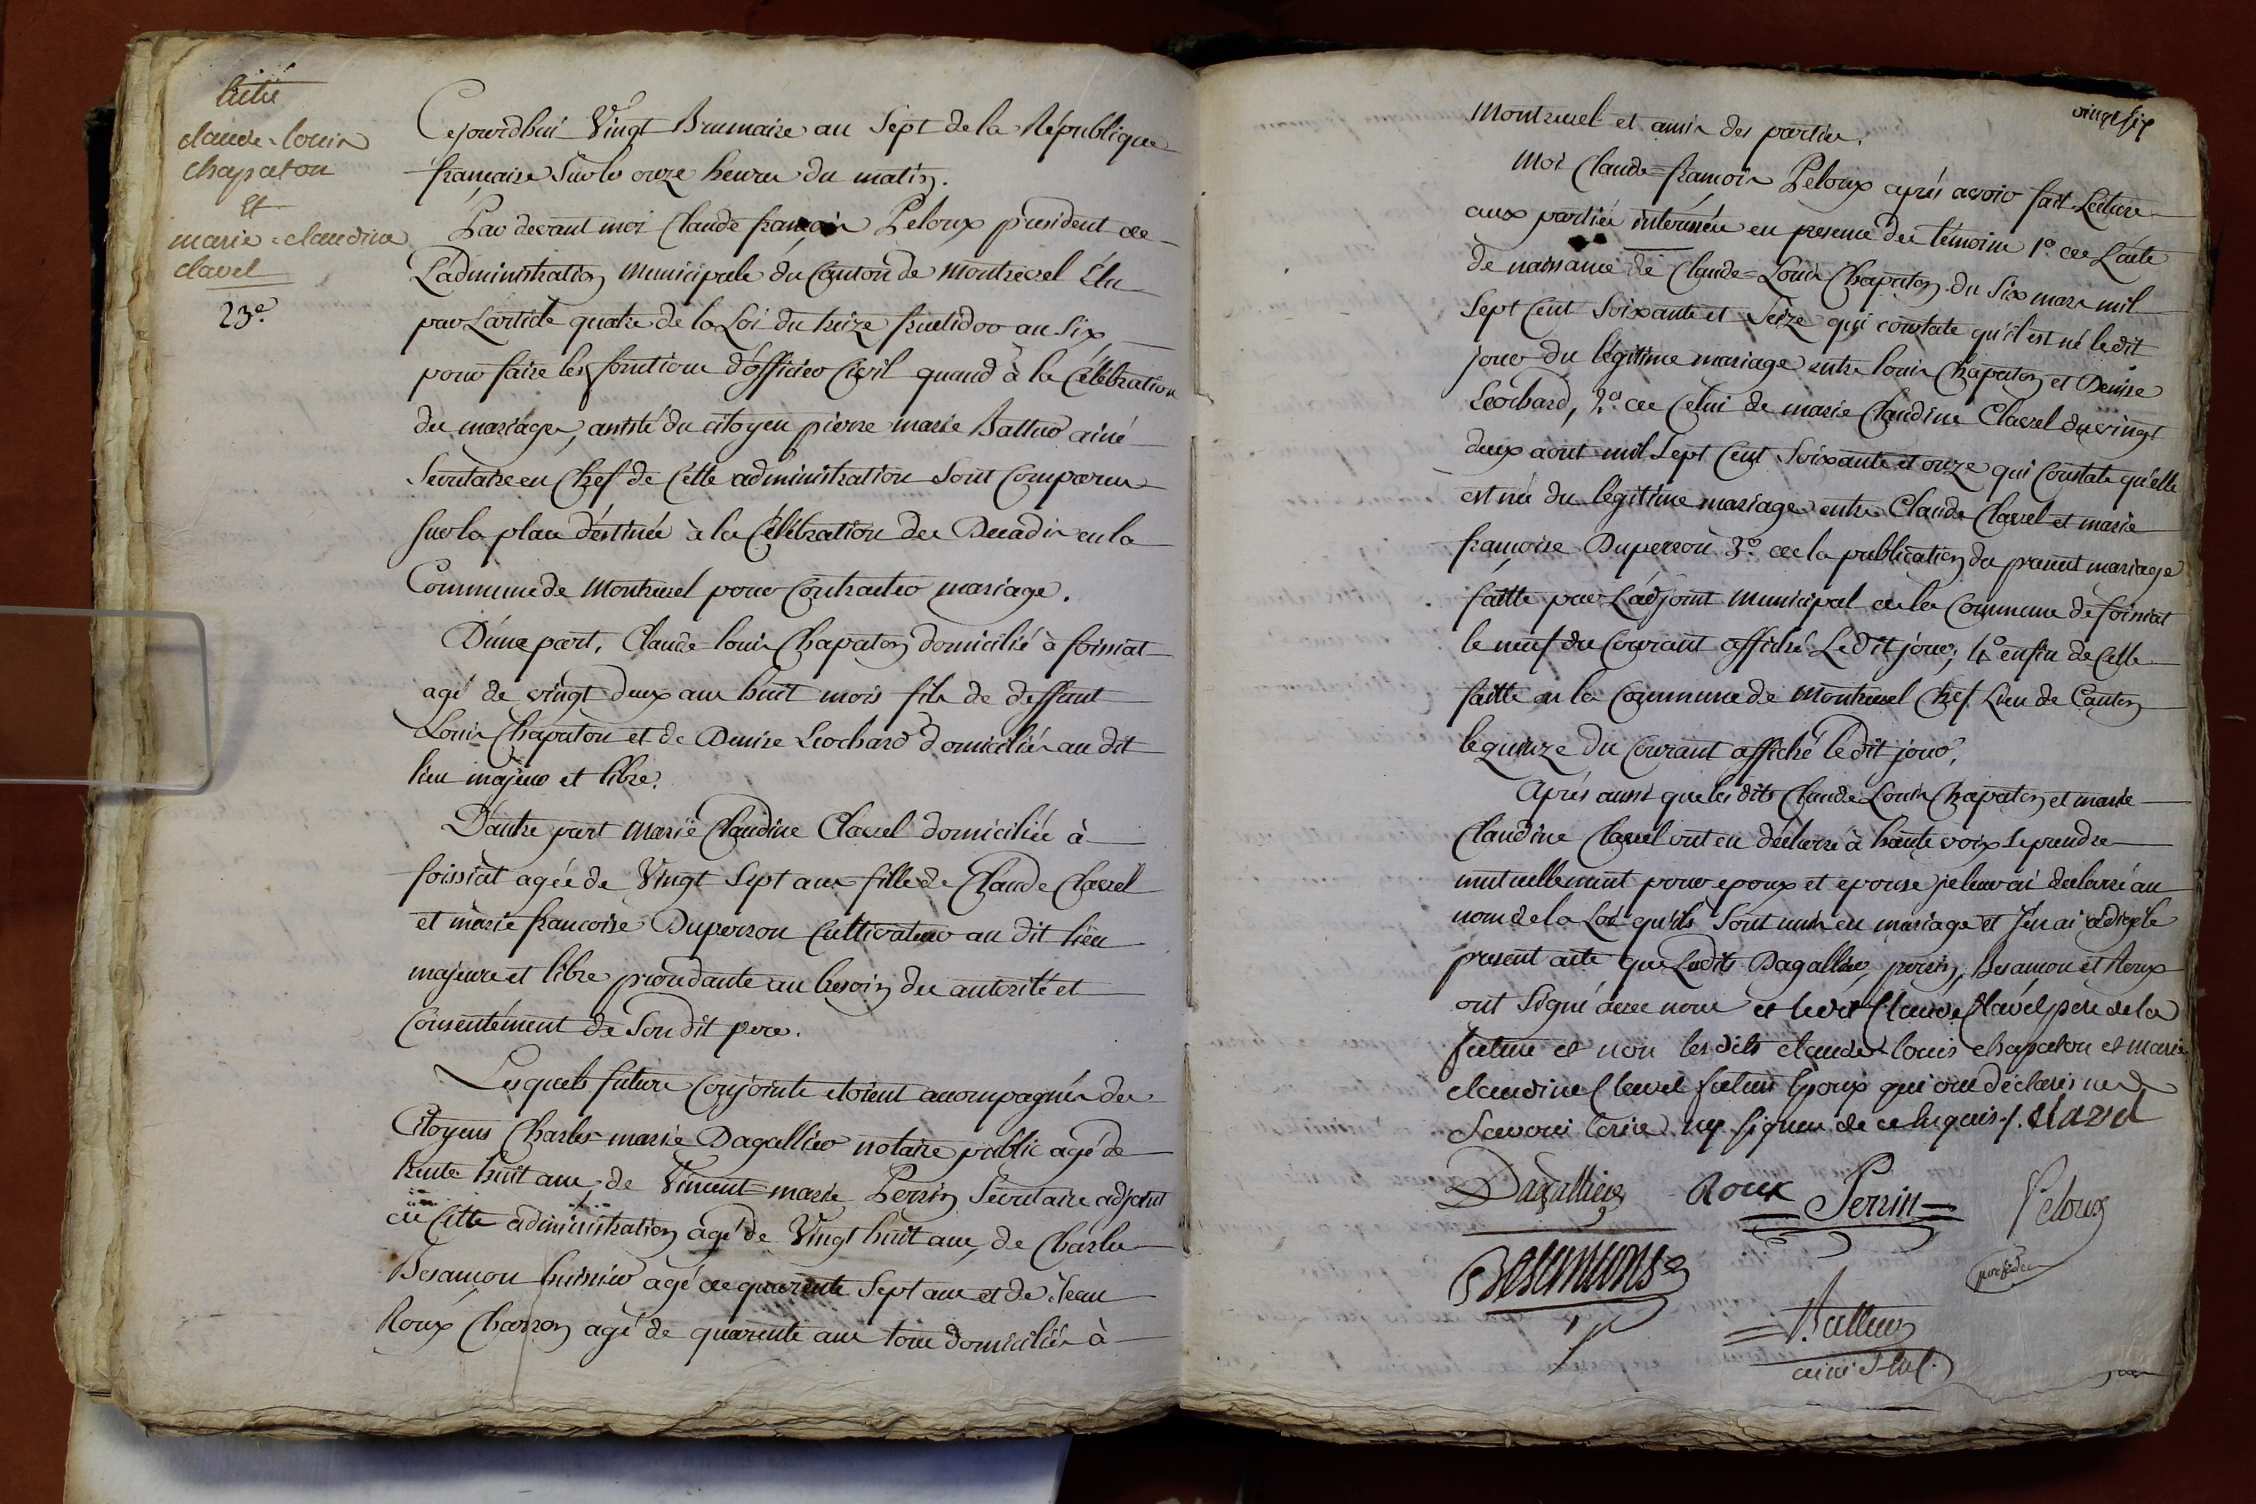 claude-louis
chapaton
et
marie-claudine
clavel
23e.
Cejourdhui Vingt Brumaire an Sept de la République
française Sur les onze heures du matin.
Par devant moi Claude françois Peloux président de
L'administration Municipale du Canton de Montrevel Élu
par L'article quatre de la Loi du treize fructidor an Six
pour faire les fonctions d'officier Civil quand à la Célébration
du mariages, assisté du citoyen pierre marie Battur ainé
Secretaire en Chef de Cette administration Sont Comparus
Sur la place déstinée à la Célébration des Decadis en la
Commune de Montrevel pour Contracter mariage.
D'une part, Claude-louis Chapaton domicilié à foissiat
agé de vingt deux ans huit mois fils de deffunt
Louis Chapaton et de Denise Leochard domiciliés au dit
lieu majeur et libre.
D'autre part Marie Claudine Clavel domiciliée à
foissiat agée de Vingt Sept ans fille de Claude Clavel
et marie francoise Duperron Cultivateur au dit lieu
majeure et libre procedante au besoin de autorité et
Consentément de Son dit pere.
Lesquels futurs Conjoints etoient accompagnés des
Citoyens Charles marie Dagallier notaire public agé de
trente huit ans, de Vincent-marie Perrin Secretaire adjoint
de Cette administration agé de Vingt huit ans, de Charles
Besançon huissier agé de quarente Sept ans et de Jean
Roux Charron agé de quarente ans tous domiciliés à
vingt six
Montrevel et amis des parties.
Moi Claude-françois Peloux après avoir fait Lecture
aux parties interessées en presence des témoins 1o. de L'acte
de naissance de Claude-Louis Chapaton du Six mars mil
Sept Cent Soixante et Seize qui constate qu'il est né ledit
jour du légitime mariage entre louis Chapaton et Denise
Léochard, 2o. de Celui de marie Claudine Clavel du vingt
deux aout mil Sept Cent Soixante et onze qui Constate qu'elle
est née du legitime mariage entre Claude Clavel et marie
françoise Duperron 3o. de la publication du present mariage
faitte par L'adjoint Municipal de la Commune de foissiat
le neuf du Courant affiché Ledit jour; 4o enfin de Celle
faitte en la Commune de Montrevel Chef Lieu de Canton
le quinze du Courant affiché ledit jour.
Après aussi que les dits Claude Louis Chapaton et marie
Claudine Clavel ont eu déclarré à haute voix Se prendre
mutuellement pour epoux et epouse je leur ai declarré au
nom de la Loi qu'ils Sont unis en mariage et J'en ai redigé le
present acte que Lesdits Dagallier, perrin, Besançon et Roux
ont Signé avec nous et ledit Claude Clavel pere de la
future et non les dits claude-louis chapaton et marie
claudine Clavel futurs Epoux qui ont déclarés ne
Savoir Ecrire ny Signer de ce Enquis /. Clavel
Dagallier Roux Perrin Peloux
président
Besancons
Battur
ainé